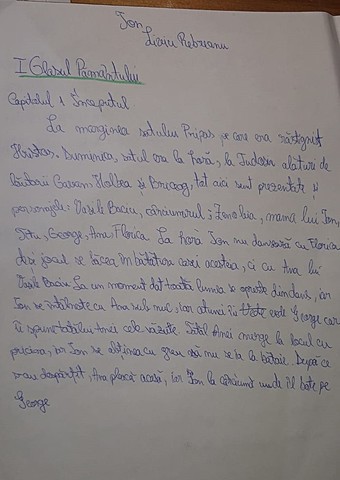 Ion
Liviu Rebreanu
I Glasul Pământului
Capitolul 1 Începutul
La marginea satului Pripas pe care era răstignit
Hristos. Duminica, satul era la horă, la Todosia alături de
lăutarii Gavan, Holbea și Briceag, tot aici sunt prezentate și
personajele: Vasile Baciu, cârciumarul, Zenobia, mama lui Ion,
Titu, George, Ana, Florica. La horă Ion nu dansează cu Florica
deși jocul se făcea în bătătura casei acesteia, ci cu Ana lui
Vasile Baciu. La un moment dat toată lumea se oprește din dans, iar
Ion se întâlnește cu Ana sub nuc, iar atunci îi vede George care
îi spune tatălui Anei cele văzute. Tatăl Anei merge la locul cu
pricina, iar Ion se abținea cu greu să nu se ia la bătaie. După ce
s-au despărțit, Ana pleacă acasă, iar Ion la cârciumă unde îl bate pe
George